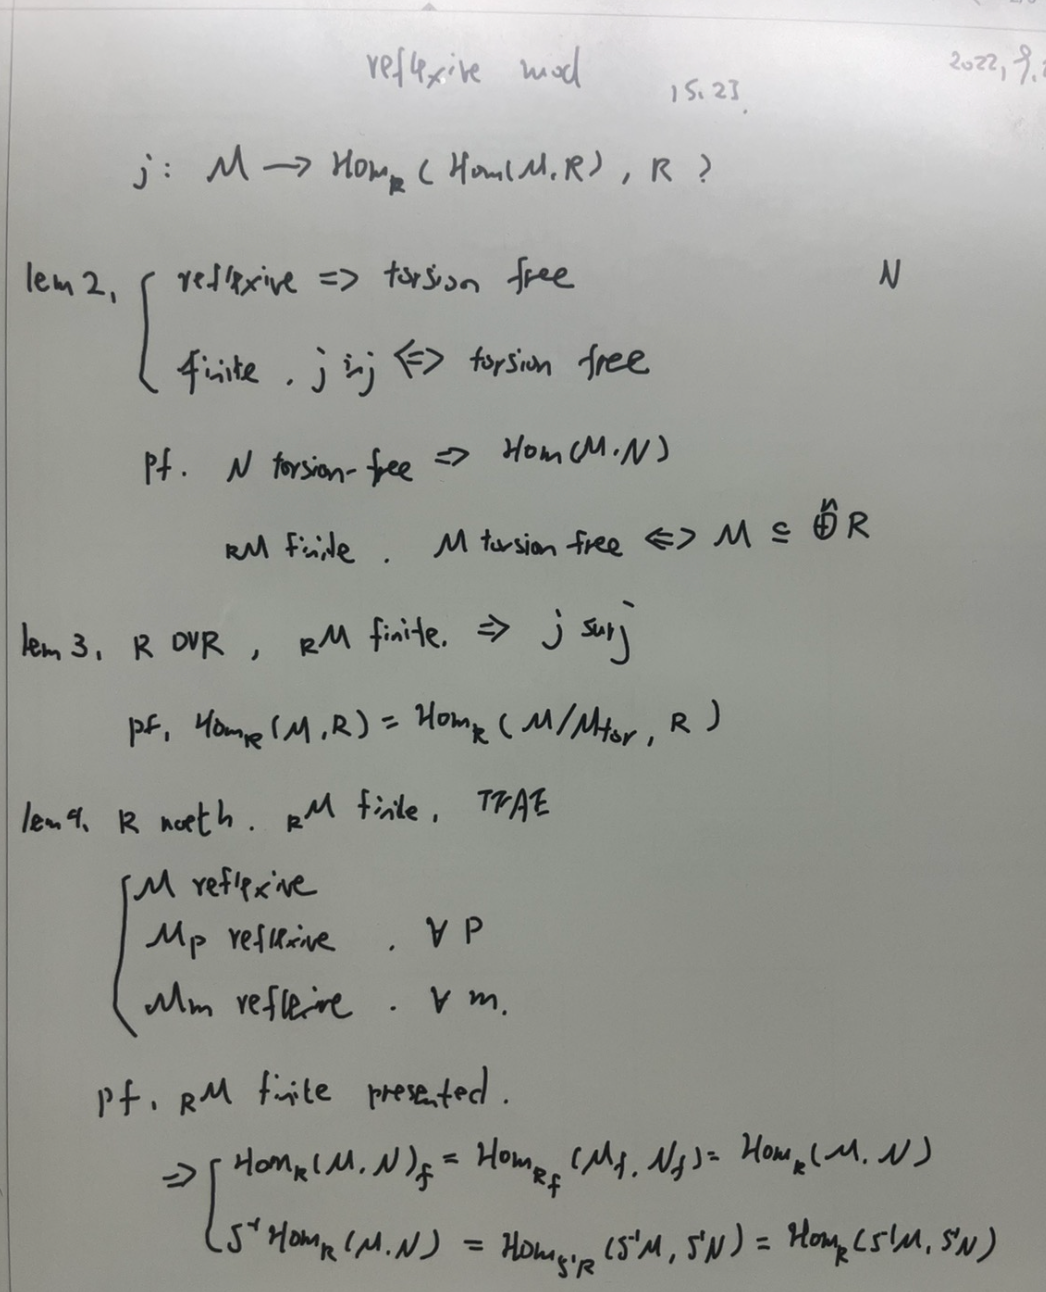 reflexive mod
15.23.
2022, 9.
j: M → Hom_R ( Hom(M,R), R ?
lem 2, { reflexive => torsion free
N
finite . j inj <=> torsion free
pf. N torsion-free => Hom(M.N)
RM finite . M torsion free <=> M ⊆ ⊕^n R
lem 3, R DVR , RM finite. => j surj
pf, Hom_R (M,R) = Hom_R ( M/M_tor, R )
lem 4. R noeth. RM finite, TFAE
{ M reflexive
M_p reflexive . ∀ P
M_m reflexive . ∀ m.
pf. RM finite presented.
=> { Hom_R(M.N)_f = Hom_{R_f} (M_f, N_f) = Hom_R(M.N)
S^{-1} Hom_R (M.N) = Hom_{S^{-1}R} (S^{-1}M, S^{-1}N) = Hom_R (S^{-1}M, S^{-1}N)